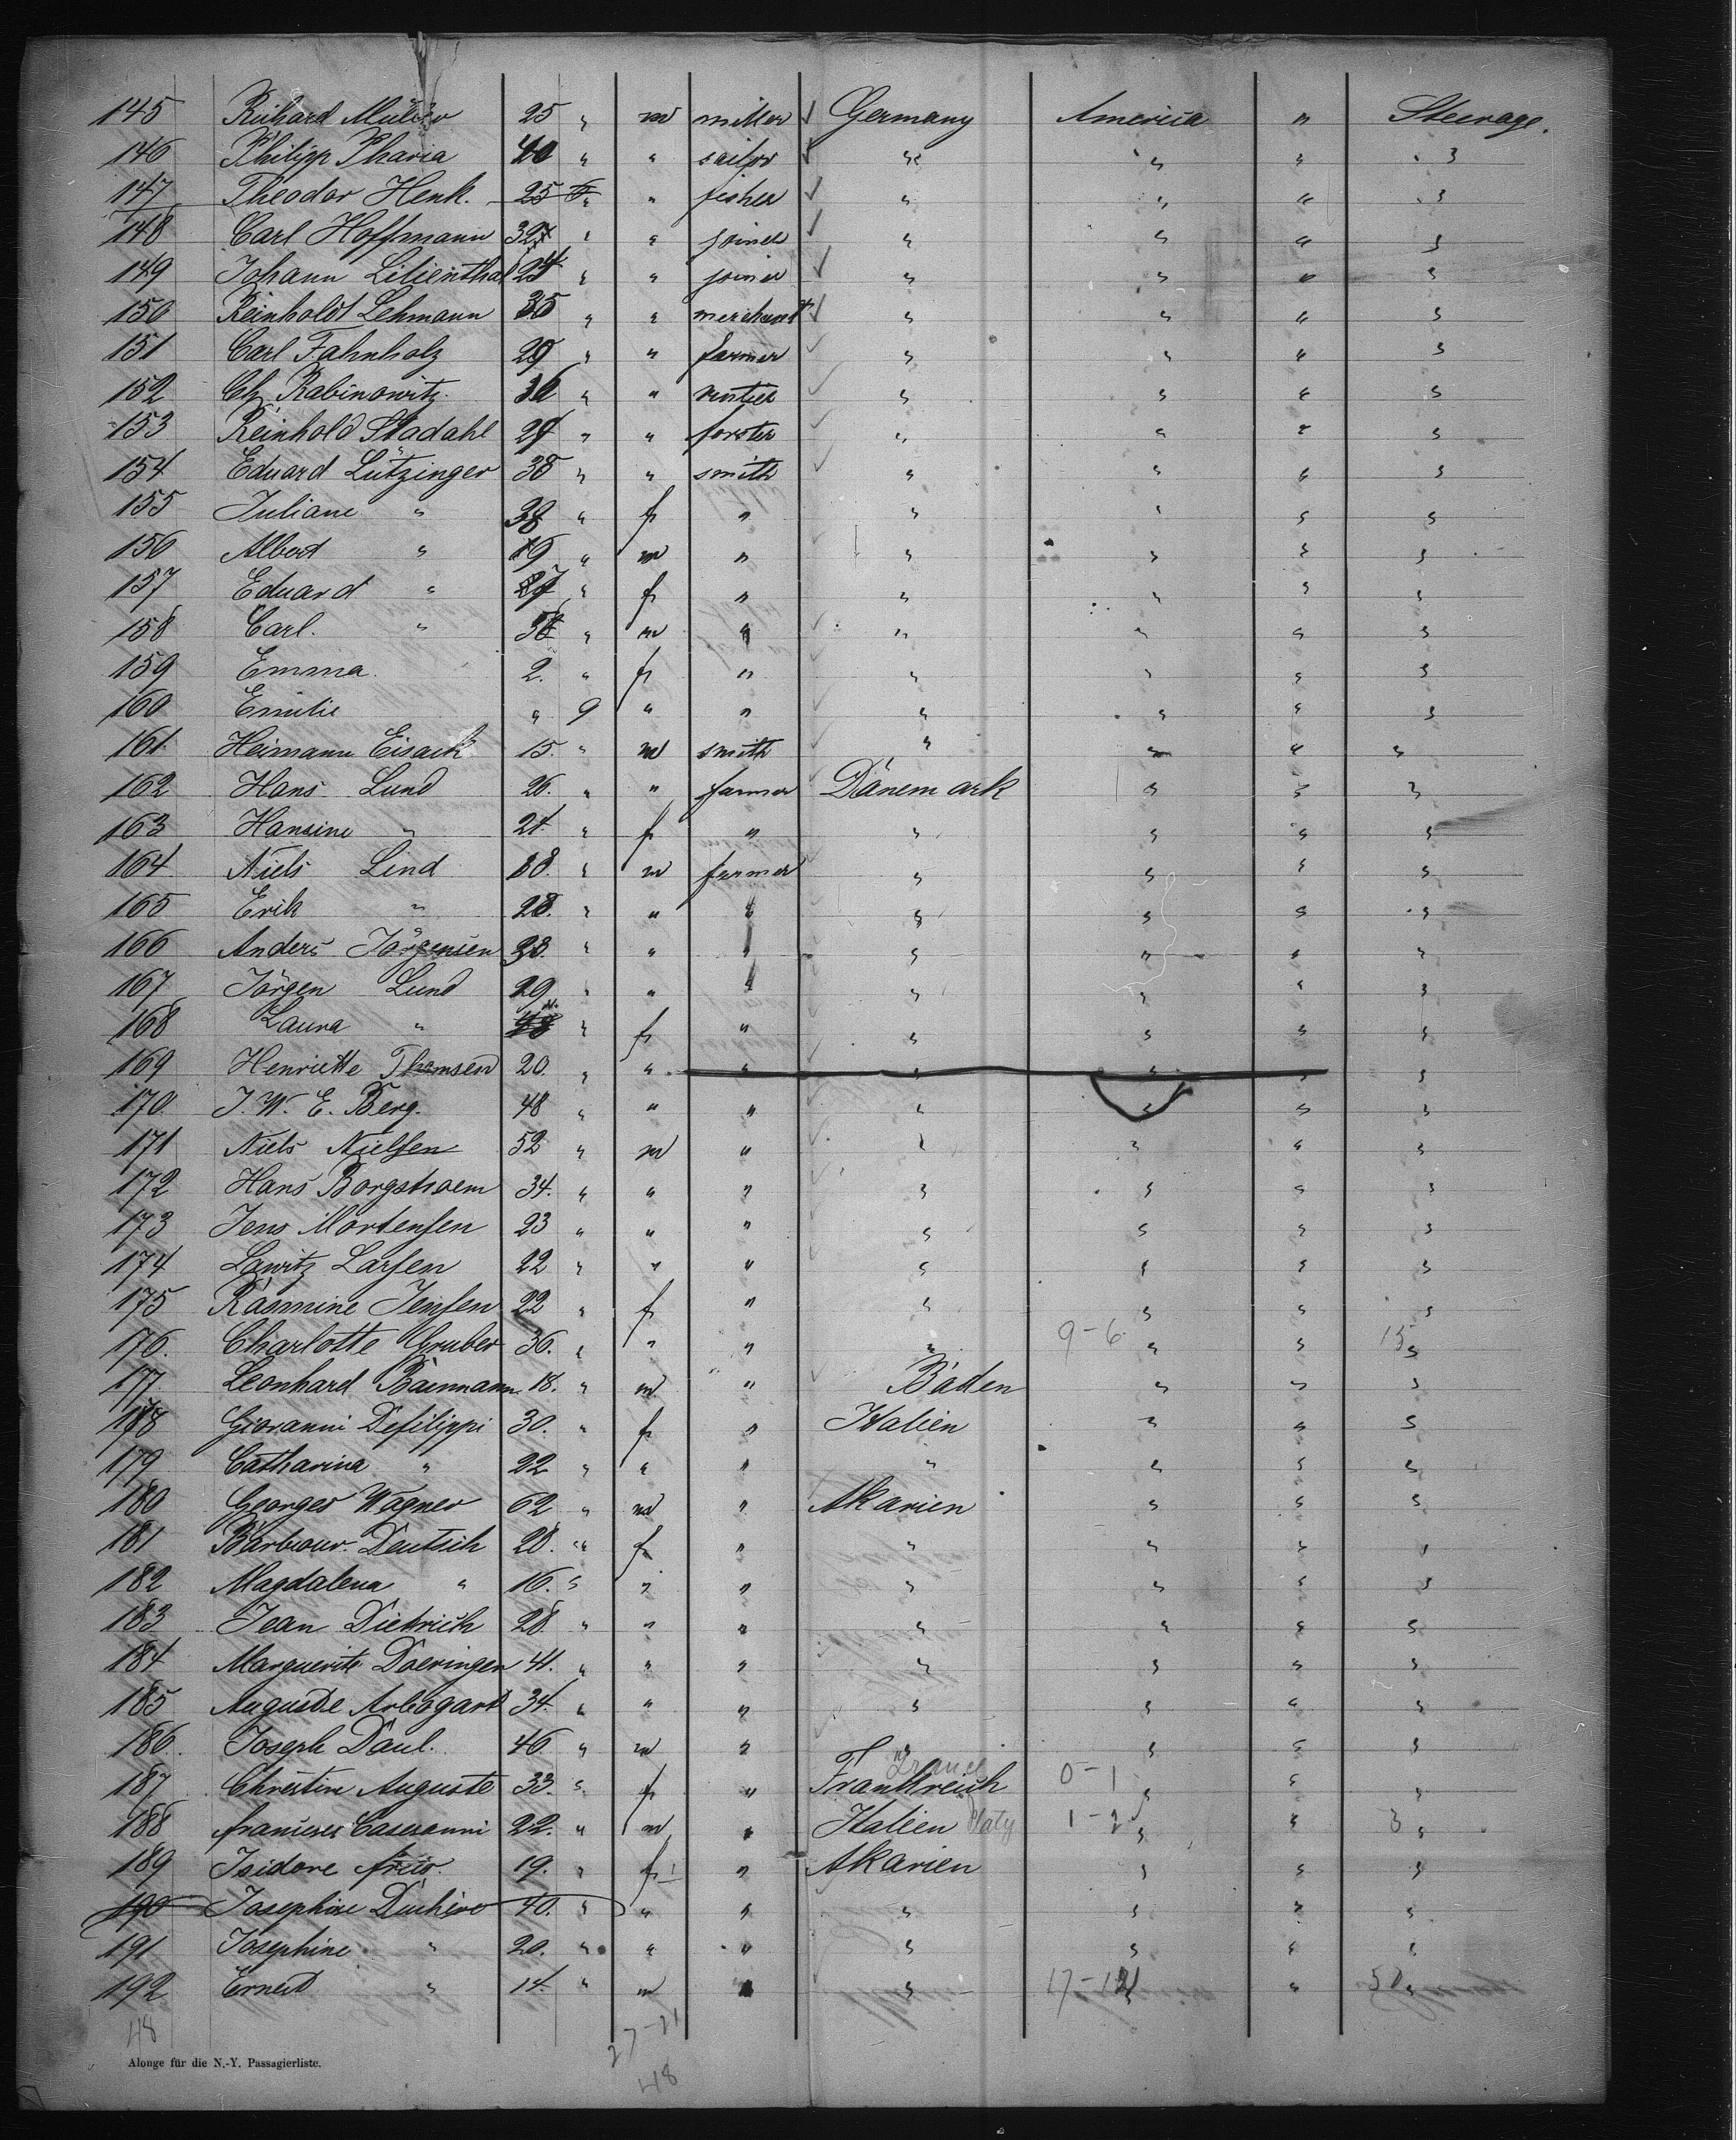 145 Richard Müller 25 " m miller Germany America " Steerage.
146 Philipp Pharia 40 " " sailor " " " "
147 Theodor Henk. 25 " " fisher " " " "
148 Carl Hoffmann 32 " " joiner " " " "
149 Johann Lilienthal 24 " " joiner " " " "
150 Reinholdt Lehmann 35 " " merchant " " " "
151 Carl Fahnholz 29 " " farmer " " " "
152 Ch. Rabinowitz 36 " " rentier " " " "
153 Reinhold Stadahl 29 " " forster " " " "
154 Eduard Lützinger 38 " " smith " " " "
155 Juliane " 38 " f " " " " "
156 Albert " 19 " m " " " " "
157 Eduard " " f " " " " "
158 Carl. " " m " " " " "
159 Emma 2. " f " " " " "
160 Emilie " 9 " " " " " "
161 Heimann Eisack 15. " m smith " " " "
162 Hans Lund 26. " " farmer Dänemark " " "
163 Hansine " 21. " f " " " " "
164 Niels Lind 18. " m farmer " " " "
165 Erik " 28. " " " " " " "
166 Anders Jörgensen 23. " " " " " " "
167 Jörgen Lund 29 " " " " " " "
168 Laura " " f " " " " "
169 Henriette Thomsen 20. " " " " " " "
170 J. W. E. Berg. 48 " " " " " " "
171 Niels Nielsen 52 " m " " " " "
172 Hans Borgstroem 34. " " " " " " "
173 Jens Mortensen 23 " " " " " " "
174 Lawitz Larsen 22 " " " " " " "
175 Rasmine Jensen 22 " f " " " " "
176. Charlotte Gruber 36. " " " " 9-6 " " 15 "
177 Leonhard Baenmann 18. " m " Baden " " "
178 Giovanni Defilippi 30. " f " Italien " " "
179 Catharina " 22 " " " " " " "
180 Georges Wagner 62 " m " Akarien " " "
181 Barbour. Deutsch 28. " f " " " " "
182 Magdalena " 16. " " " " " " "
183 Jean Dietrich 28 " " " " " " "
184 Marguerite Doeringer 41. " " " " " " "
185 Auguste Arbogart 34. " " " " " " "
186. Joseph Daul. 46. " m " " " " "
187 Christin Auguste 33. " f " Frankreich France 0-1 " " "
188 Caseranni 22. " m " Italien Italy 1-2 " " 3 "
189 Isidore 19. " f " Akarien " " "
190 Josephine 40. " " " " " " "
191 Josephine " 20. " " " " " " "
192 Ernest " 14. " m " " 17-121 " " 50 "
48
27-21
Alonge für die N.-Y. Passagierliste.
48